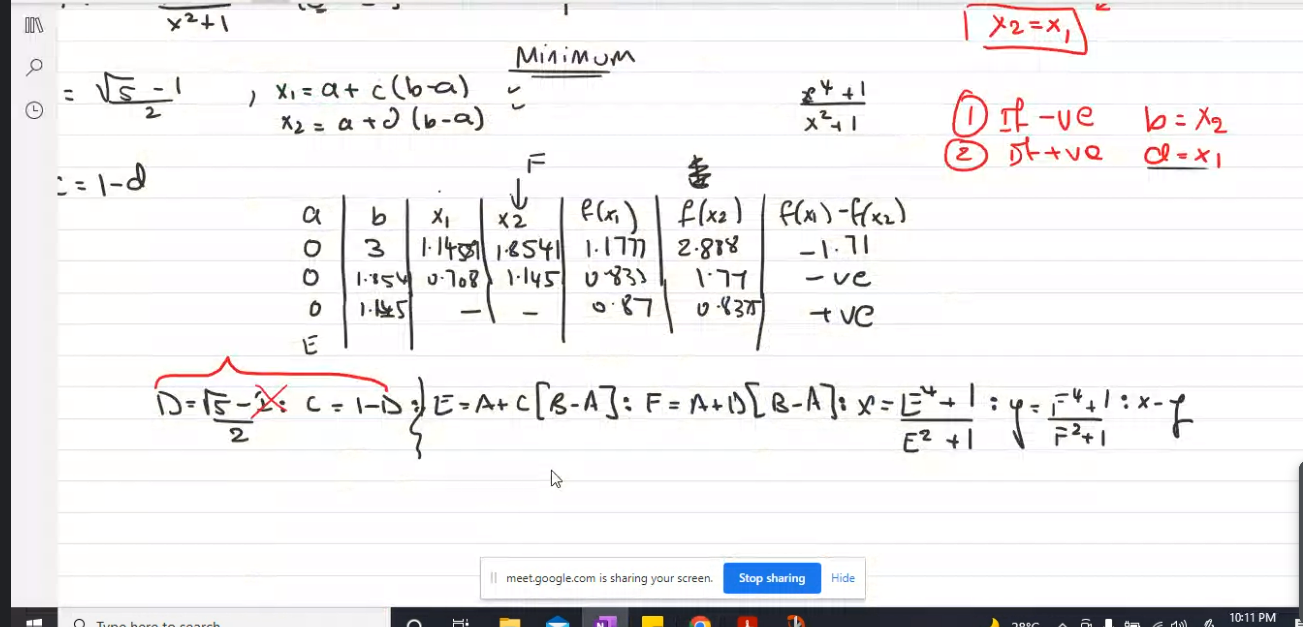 x²+1
x2 = x1
Minimum
= √5 - 1 / 2 , x1 = a + c(b-a)
x2 = a + d(b-a)
x⁴+1 / x²+1
① If -ve b = x2
② If +ve a = x1
c = 1-d
F
a | b | x1 | x2 | f(x1) | f(x2) | f(x1)-f(x2)
0 | 3 | 1.1459 | 1.8541 | 1.1777 | 2.888 | -1.71
0 | 1.854 | 0.708 | 1.145 | 0.833 | 1.77 | -ve
0 | 1.145 | - | - | 0.87 | 0.835 | +ve
E
D = √5 - / 2 : C = 1-D : E = A+C[B-A] : F = A+D[B-A] : x = E⁴+1 / E²+1 : y = F⁴+1 / F²+1 : x-y
meet.google.com is sharing your screen. Stop sharing Hide
Type here to search 28°C 10:11 PM